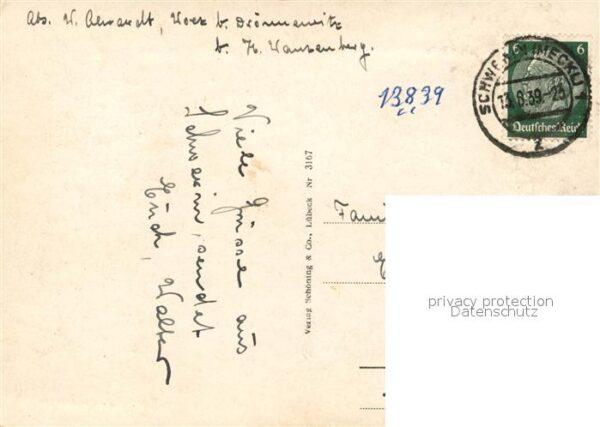 Abs. W. Ahrendt,
13839
SCHWERIN (MECKL) 1
13.8.39
z
6 6
Deutsches Reich
Viele Grüsse aus
Schwerin, sendet
Euch, Walter
Verlag Schöning & Co., Lübeck Nr 3167
Fami
privacy protection
Datenschutz